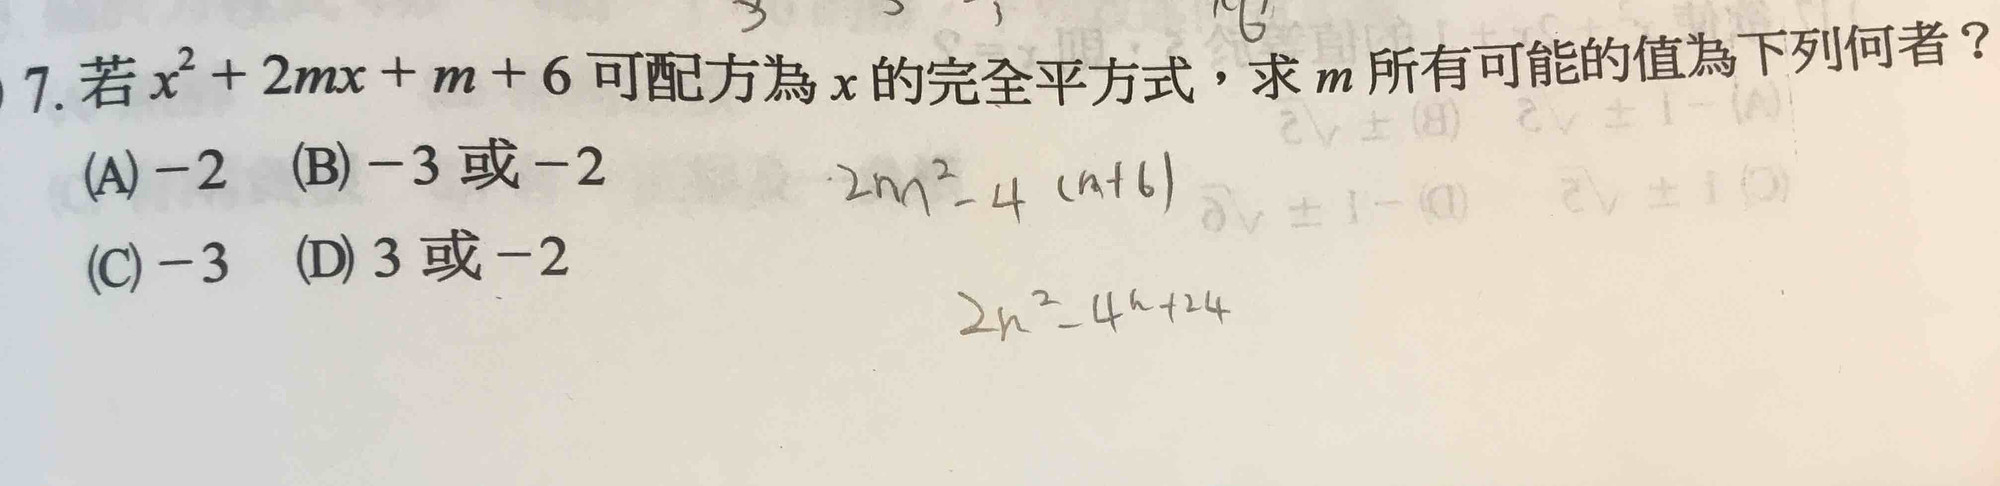 7. 若 x² + 2mx + m + 6 可配方為 x 的完全平方式，求 m 所有可能的值為下列何者？
(A) －2 (B) －3 或 －2
(C) －3 (D) 3 或 －2
2m² - 4 (m+6)
2m² - 4m+24